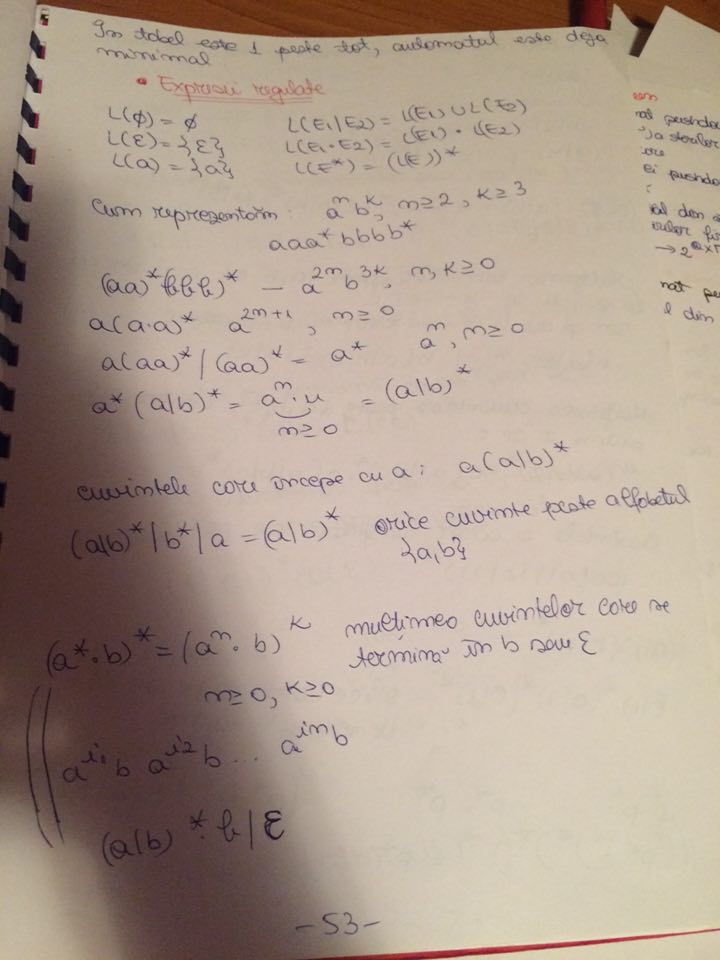 În tabel este 1 peste tot, automatul este deja
minimal
• Expresii regulate
L(∅) = ∅ L(E1|E2) = L(E1) ∪ L(E2)
L(ε) = {ε} L(E1·E2) = L(E1) · L(E2)
L(a) = {a} L(E*) = (L(E))*
Cum reprezentăm: aⁿbᵏ, n≥2, k≥3
aaa*bbbb*
(aa)*(bbb)* – a²ⁿb³ᵏ, n,k≥0
a(a·a)* a²ⁿ⁺¹, n≥0
a(aa)*|(aa)* = a* aⁿ, n≥0
a*(a|b)* = aⁿ·u = (a|b)*
n≥0
cuvintele care încep cu a: a(a|b)*
(a|b)*|b*|a = (a|b)* orice cuvinte peste alfabetul
{a,b}
(a*·b)* = (aⁿ·b)ᵏ mulțimea cuvintelor care se
termină în b sau ε
n≥0, k≥0
aⁱ¹b aⁱ²b ... aⁱⁿb
(a|b)*·b|ε
-53-
nat pushdo
ei pushdo
nat pu
l din